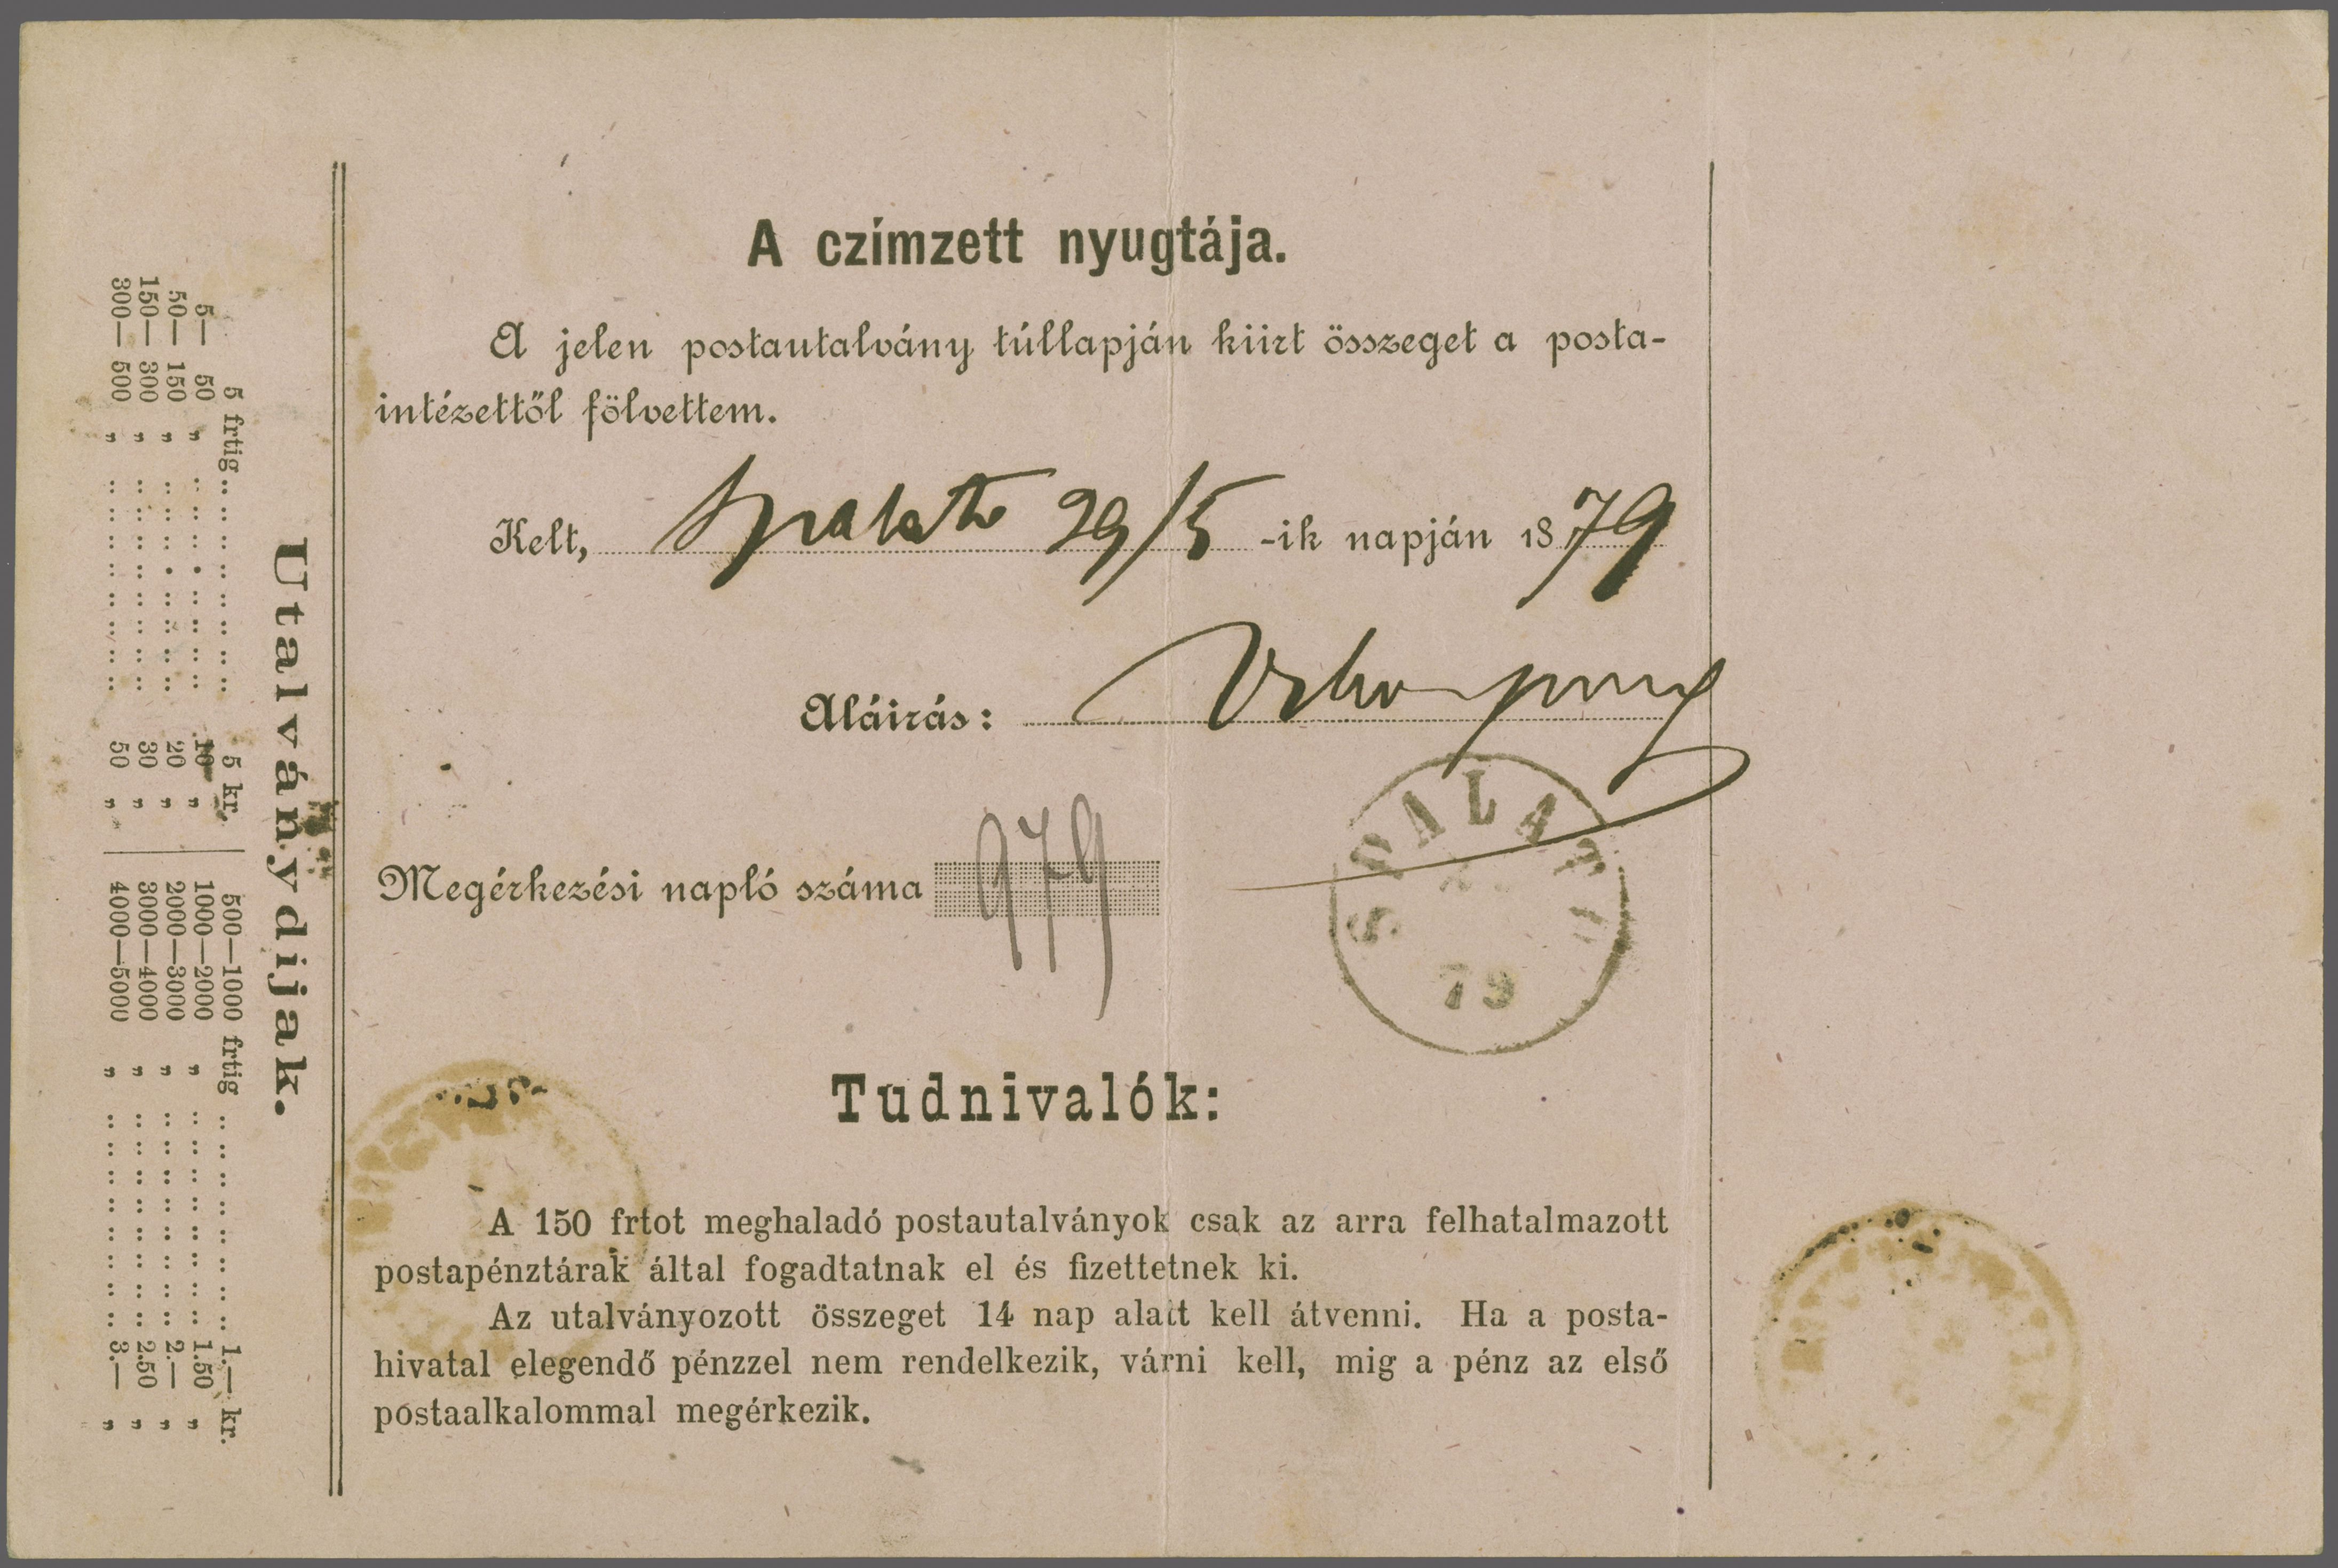 A czímzett nyugtája.
A jelen postautalvány túllapján kiirt összeget a posta-
intézettől fölvettem.
Kelt, Spalato 29/5 -ik napján 1879
Aláirás:
Megérkezési napló száma 979
SPALATO
79
Tudnivalók:
A 150 frtot meghaladó postautalványok csak az arra felhatalmazott
postapénztárak által fogadtatnak el és fizettetnek ki.
Az utalványozott összeget 14 nap alatt kell átvenni. Ha a posta-
hivatal elegendő pénzzel nem rendelkezik, várni kell, mig a pénz az első
postaalkalommal megérkezik.
Utalványdijak.
5 frtig .. .. .. .. .. .. .. .. 5 kr.
5— 50 „ .. .. .. .. .. .. .. .. 10 „
50— 150 „ .. .. .. .. .. .. .. .. 20 „
150— 300 „ .. .. .. .. .. .. .. .. 30 „
300— 500 „ .. .. .. .. .. .. .. .. 50 „
500—1000 frtig .. .. .. .. .. .. .. .. 1.— kr.
1000—2000 „ .. .. .. .. .. .. .. .. 1.50 „
2000—3000 „ .. .. .. .. .. .. .. .. 2.— „
3000—4000 „ .. .. .. .. .. .. .. .. 2.50 „
4000—5000 „ .. .. .. .. .. .. .. .. 3.— „